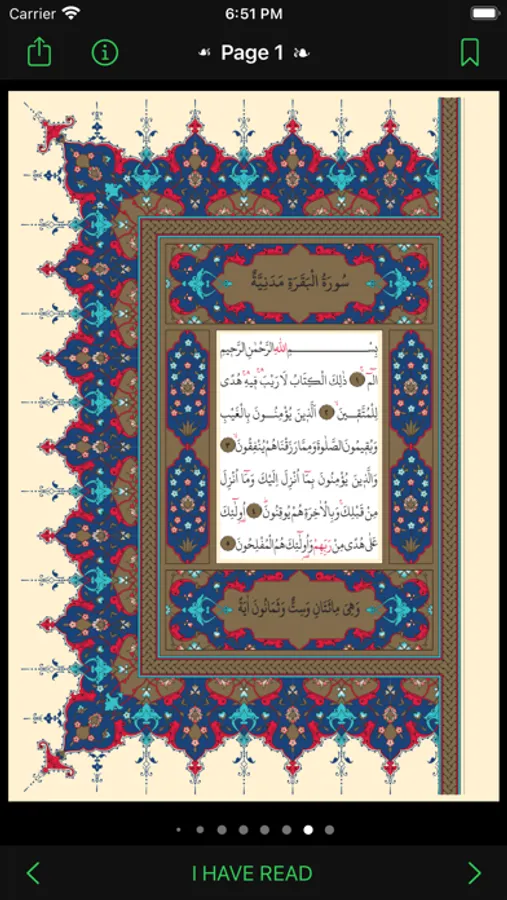 Carrier 6:51 PM
Page 1
سُورَةُ الْبَقَرَةِ مَدَنِيَّةٌ
بِسْمِ اللّٰهِ الرَّحْمٰنِ الرَّحِيمِ
الٓمٓ ۚ ﴿١﴾ ذٰلِكَ الْكِتَابُ لَا رَيْبَ ۚۛ فِيهِ ۚۛ هُدًى
لِلْمُتَّقِينَ ۙ ﴿٢﴾ اَلَّذِينَ يُؤْمِنُونَ بِالْغَيْبِ
وَيُقِيمُونَ الصَّلٰوةَ وَمِمَّا رَزَقْنَاهُمْ يُنْفِقُونَ ۙ ﴿٣﴾
وَالَّذِينَ يُؤْمِنُونَ بِمَٓا اُنْزِلَ اِلَيْكَ وَمَٓا اُنْزِلَ
مِنْ قَبْلِكَ ۚ وَبِالْاٰخِرَةِ هُمْ يُوقِنُونَ ۜ ﴿٤﴾ اُو۬لٰٓئِكَ
عَلٰى هُدًى مِنْ رَبِّهِمْ وَاُو۬لٰٓئِكَ هُمُ الْمُفْلِحُونَ ﴿٥﴾
وَهِيَ مِائَتَانِ وَسِتٌّ وَثَمَانُونَ اٰيَةً
I HAVE READ